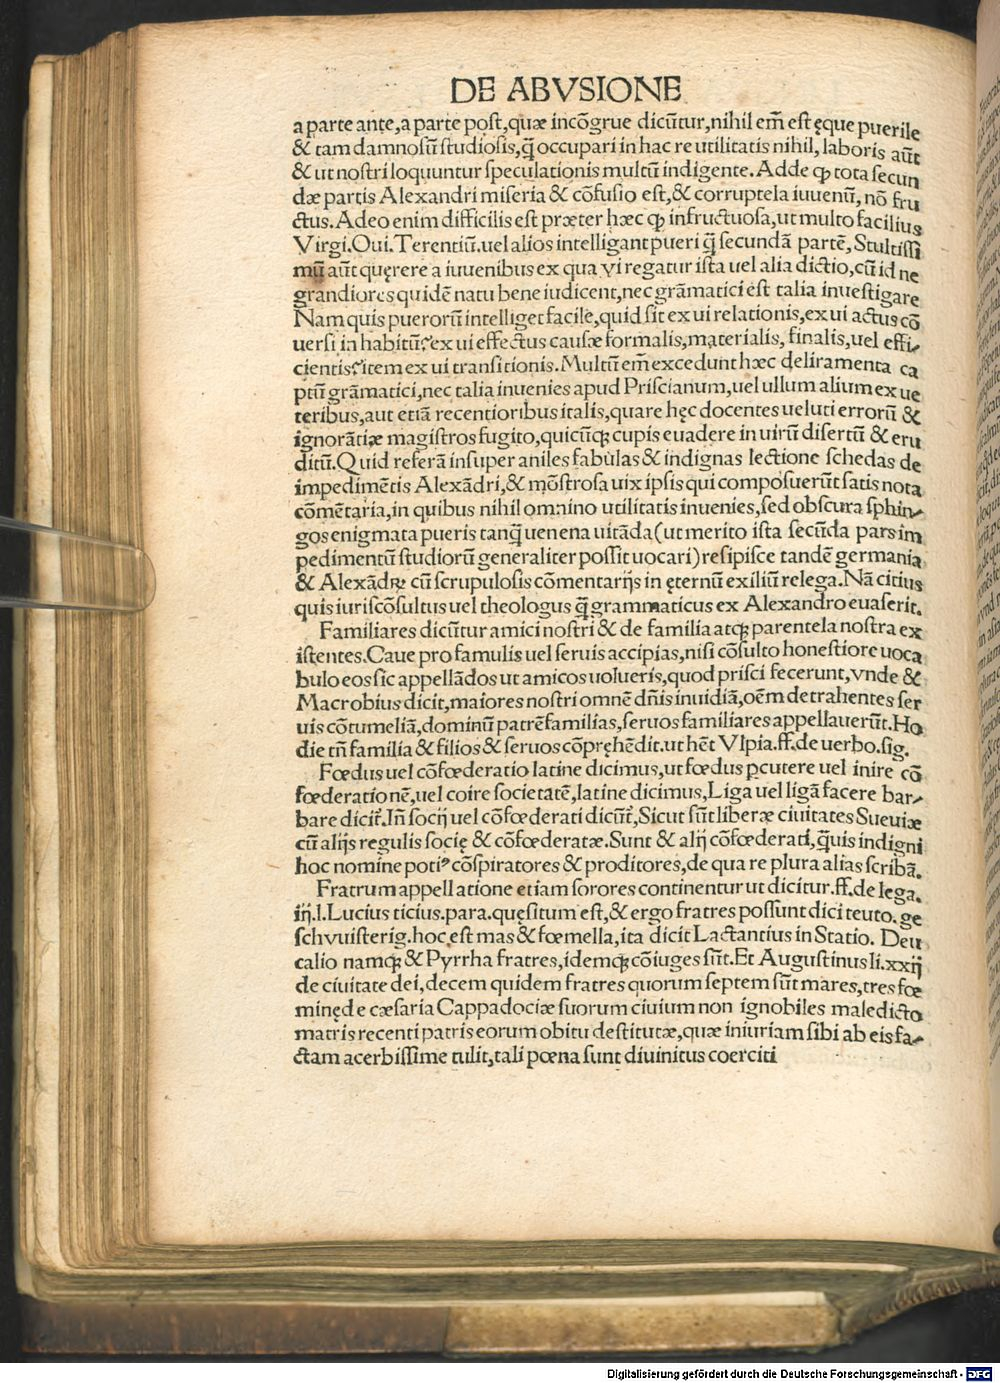 DE ABVSIONE
a parte ante,a parte post,quæ incõgrue dicũtur,nihil em̃ est ęque puerile
& tam damnosũ studiosis,q̃ occupari in hac re utilitatis nihil, laboris aũt
& ut nostri loquuntur speculationis multũ indigente. Adde ꝙ tota secun
dæ partis Alexandri miseria & cõfusio est,& corruptela iuuenũ, nõ fru
ctus. Adeo enim difficilis est præter hæc ꝙ infructuosa, ut multo facilius
Virgi.Oui.Terentiũ.uel alios intelligant pueri q̃ secundã partẽ, Stultissi
mũ aũt quęrere a iuuenibus ex qua vi regatur ista uel alia dictio, cũ id ne
grandiores quidẽ natu bene iudicent, nec grãmatici est talia inuestigare
Nam quis puerorũ intelliget facile, quid sit ex ui relationis, ex ui actus cõ
uersi in habitũ? ex ui effectus causæ formalis, materialis, finalis, uel effi-
cientis? item ex ui transitionis. Multũ em̃ excedunt hæc deliramenta ca
ptũ grãmatici, nec talia inuenies apud Priscianum, uel ullum alium ex ue
teribus, aut etiã recentioribus italis, quare hęc docentes ueluti errorũ &
ignorãtiæ magistros fugito, quicũqꝫ cupis euadere in uirũ disertũ & eru
ditũ. Quid referã insuper aniles fabulas & indignas lectione schedas de
impedimẽtis Alexãdri, & mõstrosa uix ipsis qui composuerũt satis nota
cõmẽtaria, in quibus nihil omnino utilitatis inuenies, sed obscura sphin-
gos enigmata pueris tanq̃ uenena uitãda (ut merito ista secũda pars im
pedimentũ studiorũ generaliter possit uocari) resipisce tandẽ germania
& Alexãdrꝝ cũ scrupulosis cõmentarijs in ęternũ exiliũ relega. Nã citius
quis iuriscõsultus uel theologus q̃ grammaticus ex Alexandro euaserit.
Familiares dicũtur amici nostri & de familia atqꝫ parentela nostra ex
istentes. Caue pro famulis uel seruis accipias, nisi cõsulto honestiore uoca
bulo eos sic appellãdos ut amicos uolueris, quod prisci fecerunt, vnde &
Macrobius dicit, maiores nostri omnẽ dñis inuidiã, oẽm detrahentes ser
uis cõtumeliã, dominũ patrẽfamilias, seruos familiares appellauerũt. Ho
die tñ familia & filios & seruos cõpręhẽdit. ut hẽt Vlpia.ff.de uerbo.sig.
Fœdus uel cõfœderatio latine dicimus, ut fœdus ꝑcutere uel inire cõ
fœderationẽ, uel coire societatẽ, latine dicimus, Liga uel ligã facere bar-
bare dicit᷑. Iñ socij uel cõfœderati dicũt᷑, Sicut sũt liberæ ciuitates Sueuiæ
cũ alijs regulis socię & cõfœderatæ. Sunt & alij cõfœderati, q̃uis indigni
hoc nomine potiꝰ cõspiratores & proditores, de qua re plura alias scribã.
Fratrum appellatione etiam sorores continentur ut dicitur.ff.de lega.
iij.l.Lucius ticius.para.quęsitum est, & ergo fratres possunt dici teuto. ge
schvuisterig. hoc est mas & fœmella, ita dicit Lactantius in Statio. Deu
calio namqꝫ & Pyrrha fratres, idemqꝫ cõiuges sũt. Et Augustinus li.xxij
de ciuitate dei, decem quidem fratres quorum septem sũt mares, tres fœ
minę de cæsaria Cappadociæ suorum ciuium non ignobiles maledicto
matris recenti patris eorum obitu destitutæ, quæ iniuriam sibi ab eis fa-
ctam acerbissime tulit, tali pœna sunt diuinitus coerciti
Digitalisierung gefördert durch die Deutsche Forschungsgemeinschaft - DFG